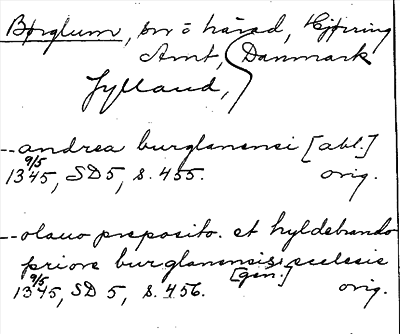 Børglum, sn o härad, Hjöring
Amt, Danmark
Jylland,
--andrea burglanensi [abl.]
9/5
1345, SD 5, s. 455. orig.
--olauo preposito. et hyldebrando
priore burglanensis ecclesie
9/5 [gen.]
1345, SD 5, s. 456. orig.